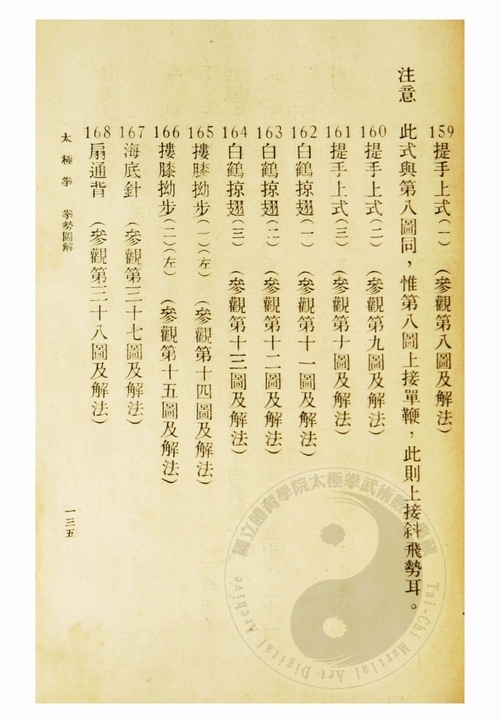 159提手上式(一) (參觀第八圖及解法)
注意 此式與第八圖同，惟第八圖上接單鞭，此則上接斜飛勢耳。
160提手上式(二) (參觀第九圖及解法)
161提手上式(三) (參觀第十圖及解法)
162白鶴掠翅(一) (參觀第十一圖及解法)
163白鶴掠翅(二) (參觀第十二圖及解法)
164白鶴掠翅(三) (參觀第十三圖及解法)
165摟膝拗步(一)(左) (參觀第十四圖及解法)
166摟膝拗步(二)(左) (參觀第十五圖及解法)
167海底針 (參觀第三十七圖及解法)
168扇通背 (參觀第三十八圖及解法)
太極拳 拳勢圖解
一三五
國立體育學院太極拳武術數位典藏
Tai-Chi Martial Art Digital Archive